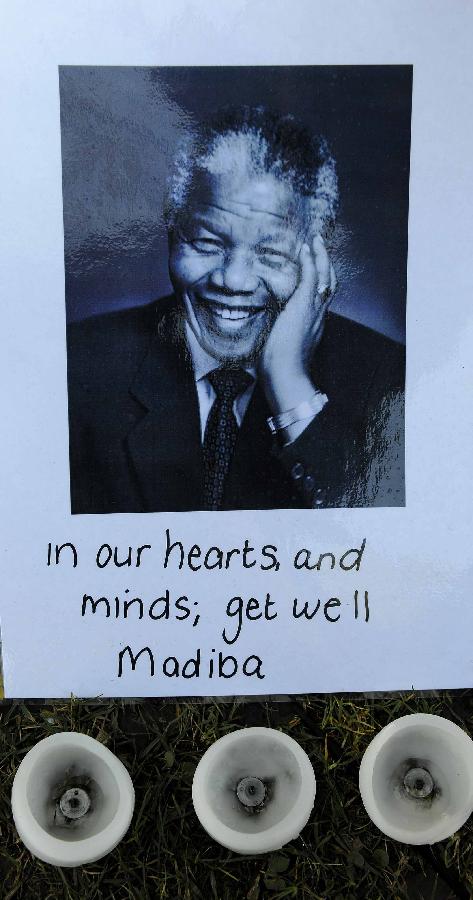 in our hearts, and
minds; get well
Madiba